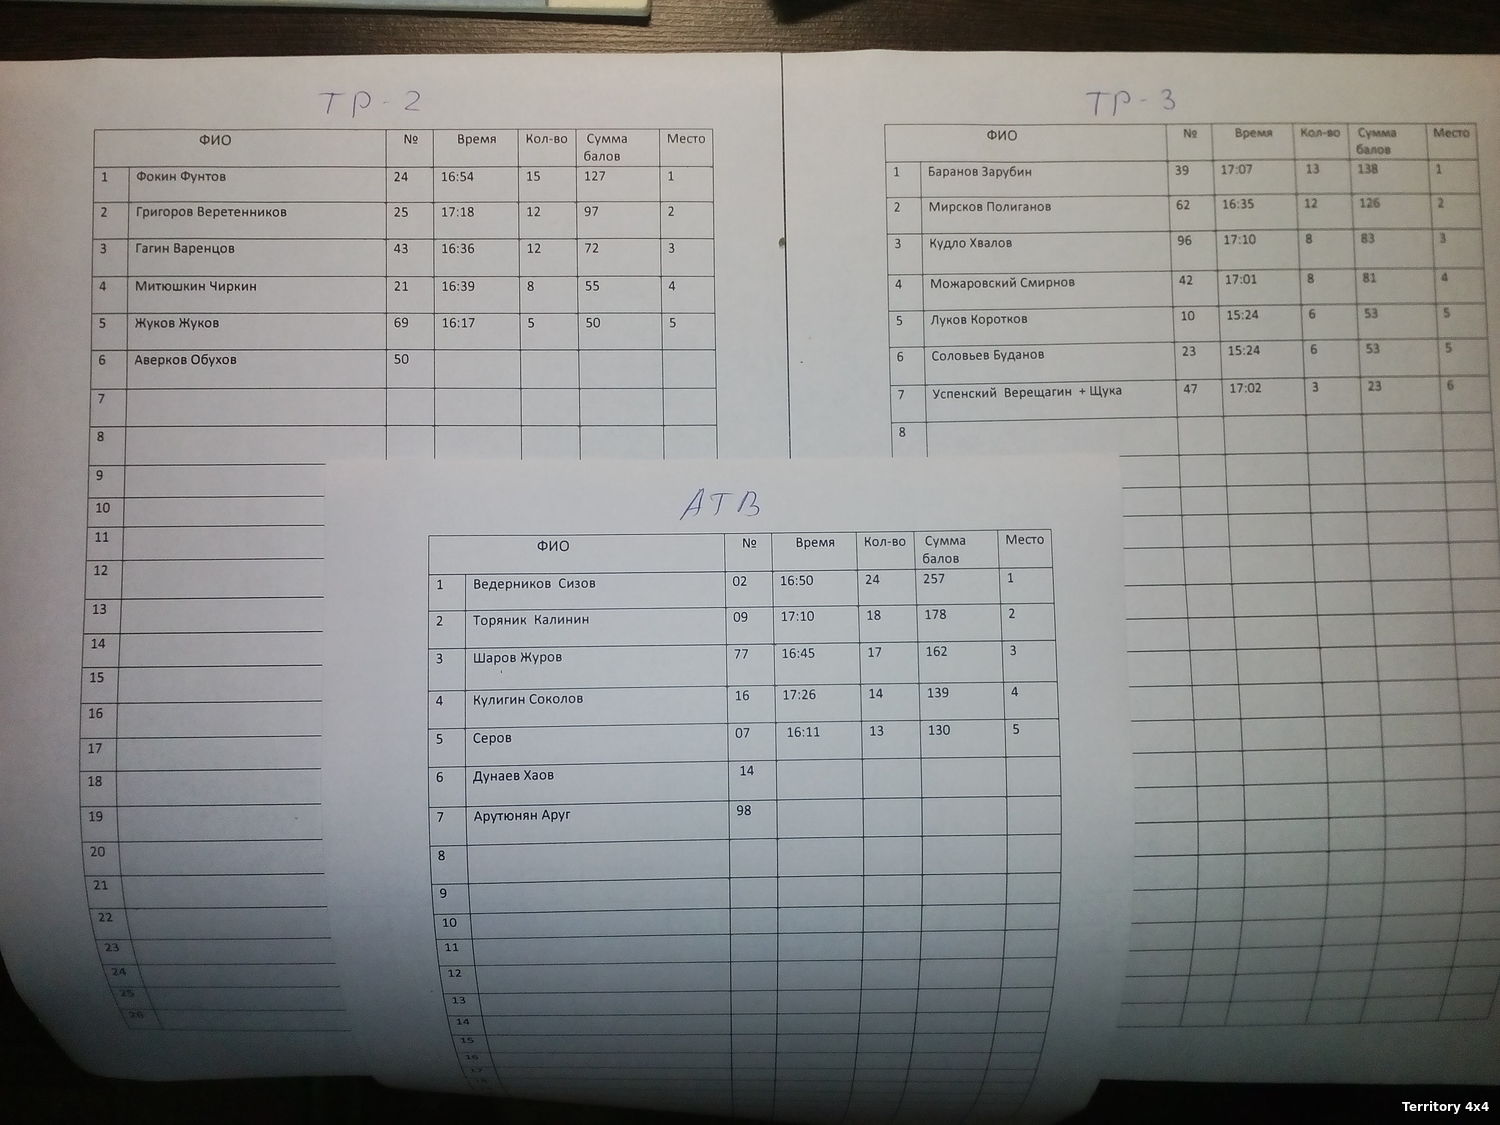 ТР-2
ФИО № Время Кол-во Сумма балов Место
1 Фокин Фунтов 24 16:54 15 127 1
2 Григоров Веретенников 25 17:18 12 97 2
3 Гагин Варенцов 43 16:36 12 72 3
4 Митюшкин Чиркин 21 16:39 8 55 4
5 Жуков Жуков 69 16:17 5 50 5
6 Аверков Обухов 50
7
8
9
10
11
12
13
14
15
16
17
18
19
20
21
22
23
24
25
26
ТР-3
ФИО № Время Кол-во Сумма балов Место
1 Баранов Зарубин 39 17:07 13 138 1
2 Мирсков Полиганов 62 16:35 12 126 2
3 Кудло Хвалов 96 17:10 8 83 3
4 Можаровский Смирнов 42 17:01 8 81 4
5 Луков Коротков 10 15:24 6 53 5
6 Соловьев Буданов 23 15:24 6 53 5
7 Успенский Верещагин + Щука 47 17:02 3 23 6
8
АТВ
ФИО № Время Кол-во Сумма балов Место
1 Ведерников Сизов 02 16:50 24 257 1
2 Торяник Калинин 09 17:10 18 178 2
3 Шаров Журов 77 16:45 17 162 3
4 Кулигин Соколов 16 17:26 14 139 4
5 Серов 07 16:11 13 130 5
6 Дунаев Хаов 14
7 Арутюнян Аруг 98
8
9
10
11
12
13
14
15
16
17
Territory 4x4